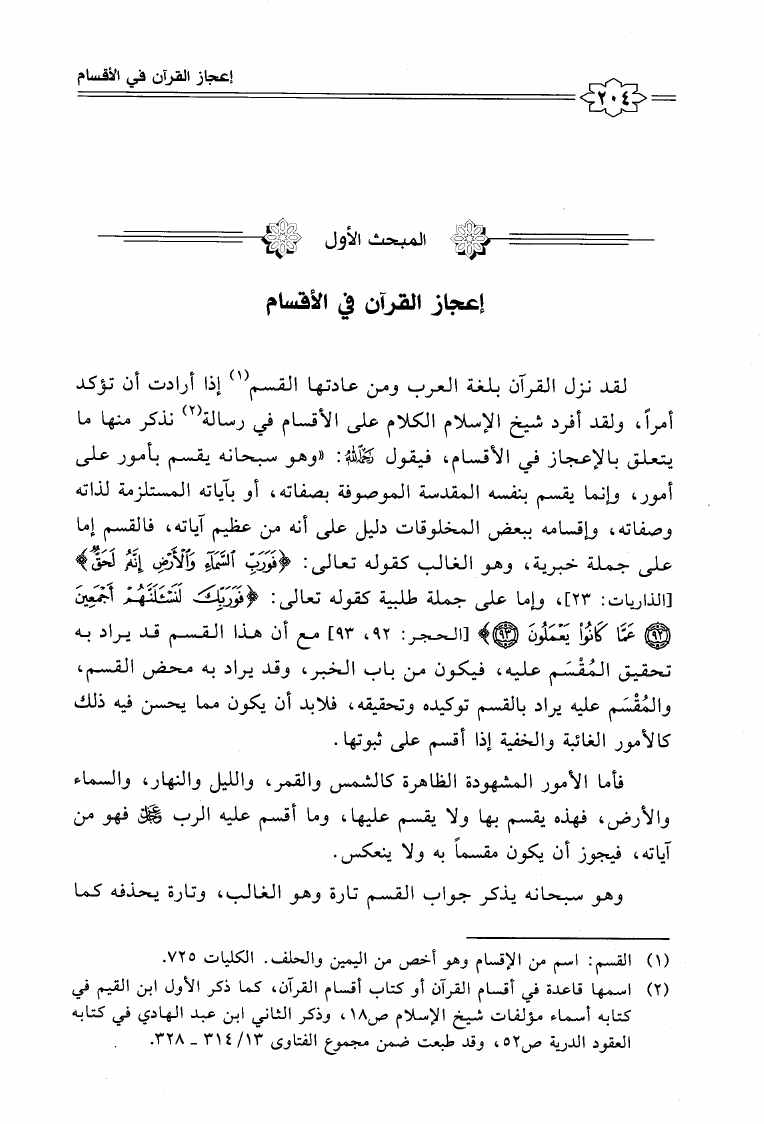 إعجاز القرآن في الأقسام
٢٠٤
المبحث الأول
إعجاز القرآن في الأقسام
لقد نزل القرآن بلغة العرب ومن عادتها القسم(١) إذا أرادت أن تؤكد
أمراً، ولقد أفرد شيخ الإسلام الكلام على الأقسام في رسالة(٢) نذكر منها ما
يتعلق بالإعجاز في الأقسام، فيقول رَحِمَهُ اللَّهُ: «وهو سبحانه يقسم بأمور على
أمور، وإنما يقسم بنفسه المقدسة الموصوفة بصفاته، أو بآياته المستلزمة لذاته
وصفاته، وإقسامه ببعض المخلوقات دليل على أنه من عظيم آياته، فالقسم إما
على جملة خبرية، وهو الغالب كقوله تعالى: ﴿فَوَرَبِّ ٱلسَّمَآءِ وَٱلْأَرْضِ إِنَّهُۥ لَحَقٌّ﴾
[الذاريات: ٢٣]، وإما على جملة طلبية كقوله تعالى: ﴿فَوَرَبِّكَ لَنَسْـَٔلَنَّهُمْ أَجْمَعِينَ
(٩٢) عَمَّا كَانُوا۟ يَعْمَلُونَ (٩٣)﴾ [الحجر: ٩٢، ٩٣] مع أن هذا القسم قد يراد به
تحقيق المُقْسَم عليه، فيكون من باب الخبر، وقد يراد به محض القسم،
والمُقْسَم عليه يراد بالقسم توكيده وتحقيقه، فلابد أن يكون مما يحسن فيه ذلك
كالأمور الغائبة والخفية إذا أقسم على ثبوتها.
فأما الأمور المشهودة الظاهرة كالشمس والقمر، والليل والنهار، والسماء
والأرض، فهذه يقسم بها ولا يقسم عليها، وما أقسم عليه الرب عَزَّ وَجَلَّ فهو من
آياته، فيجوز أن يكون مقسماً به ولا ينعكس.
وهو سبحانه يذكر جواب القسم تارة وهو الغالب، وتارة يحذفه كما
(١) القسم: اسم من الإقسام وهو أخص من اليمين والحلف. الكليات ٧٢٥.
(٢) اسمها قاعدة في أقسام القرآن أو كتاب أقسام القرآن، كما ذكر الأول ابن القيم في
كتابه أسماء مؤلفات شيخ الإسلام ص١٨، وذكر الثاني ابن عبد الهادي في كتابه
العقود الدرية ص٥٢، وقد طبعت ضمن مجموع الفتاوى ٣١٤/١٣ - ٣٢٨.